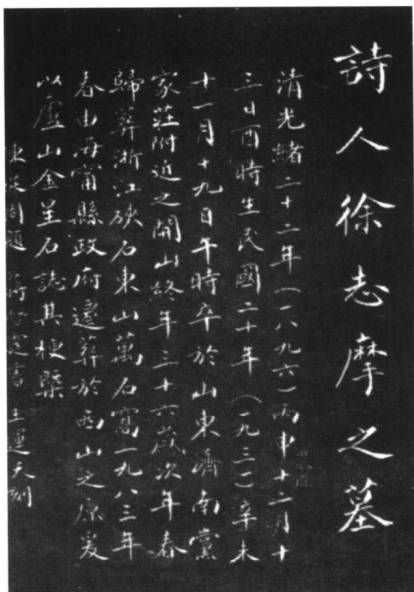 詩人徐志摩之墓
清光緒二十二年(一八九六)丙申十二月十
三日酉時生民國二十年(一九三一)辛未
十一月十九日午時卒於山東濟南黨
家莊附近之開山終年三十六歲次年春
歸葬浙江硤石東山萬石窩一九八三年
春由海甯縣政府遷葬於西山之原爰
以廬山金星石誌其梗槩
陳從周題 蔣 書 王運天刻